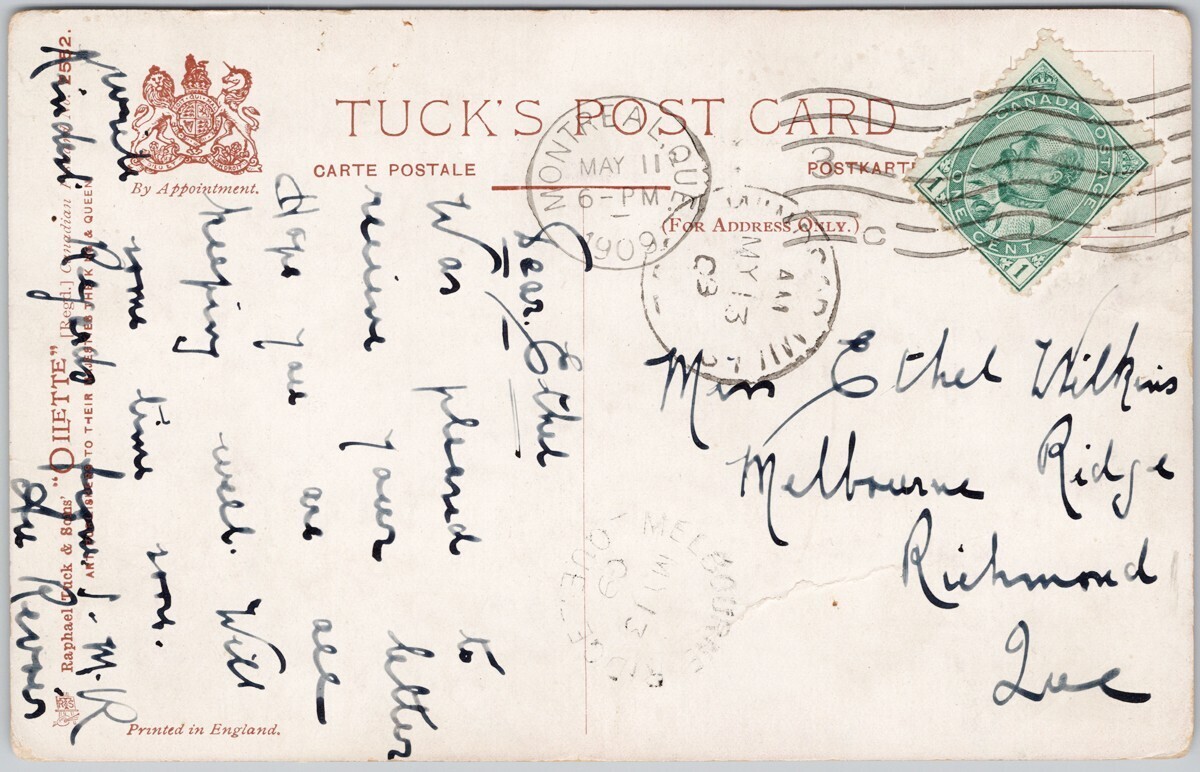 TUCK'S POST CARD
CARTE POSTALE
POSTKART
(FOR ADDRESS ONLY.)
By Appointment.
MONTREAL, QUE.
MAY 11
6-PM
1909
AM
MY 13
09
CANADA POSTAGE
ONE CENT
1
1
Miss Ethel Wilkins
Melbourne Ridge
Richmond
Que
MELBOURNE RIDGE
MY 13
09
QUEBEC
Dear Ethel
Was pleased to
recieve your letter
Hope you are all
keeping well. Will
write some time soon.
Kindest Regards from J. M. R
Au Revoir
Raphael Tuck & Sons' "OILETTE" [Regd.] Canadian 2562.
ART PUBLISHERS TO THEIR MAJESTIES THE KING & QUEEN
Printed in England.